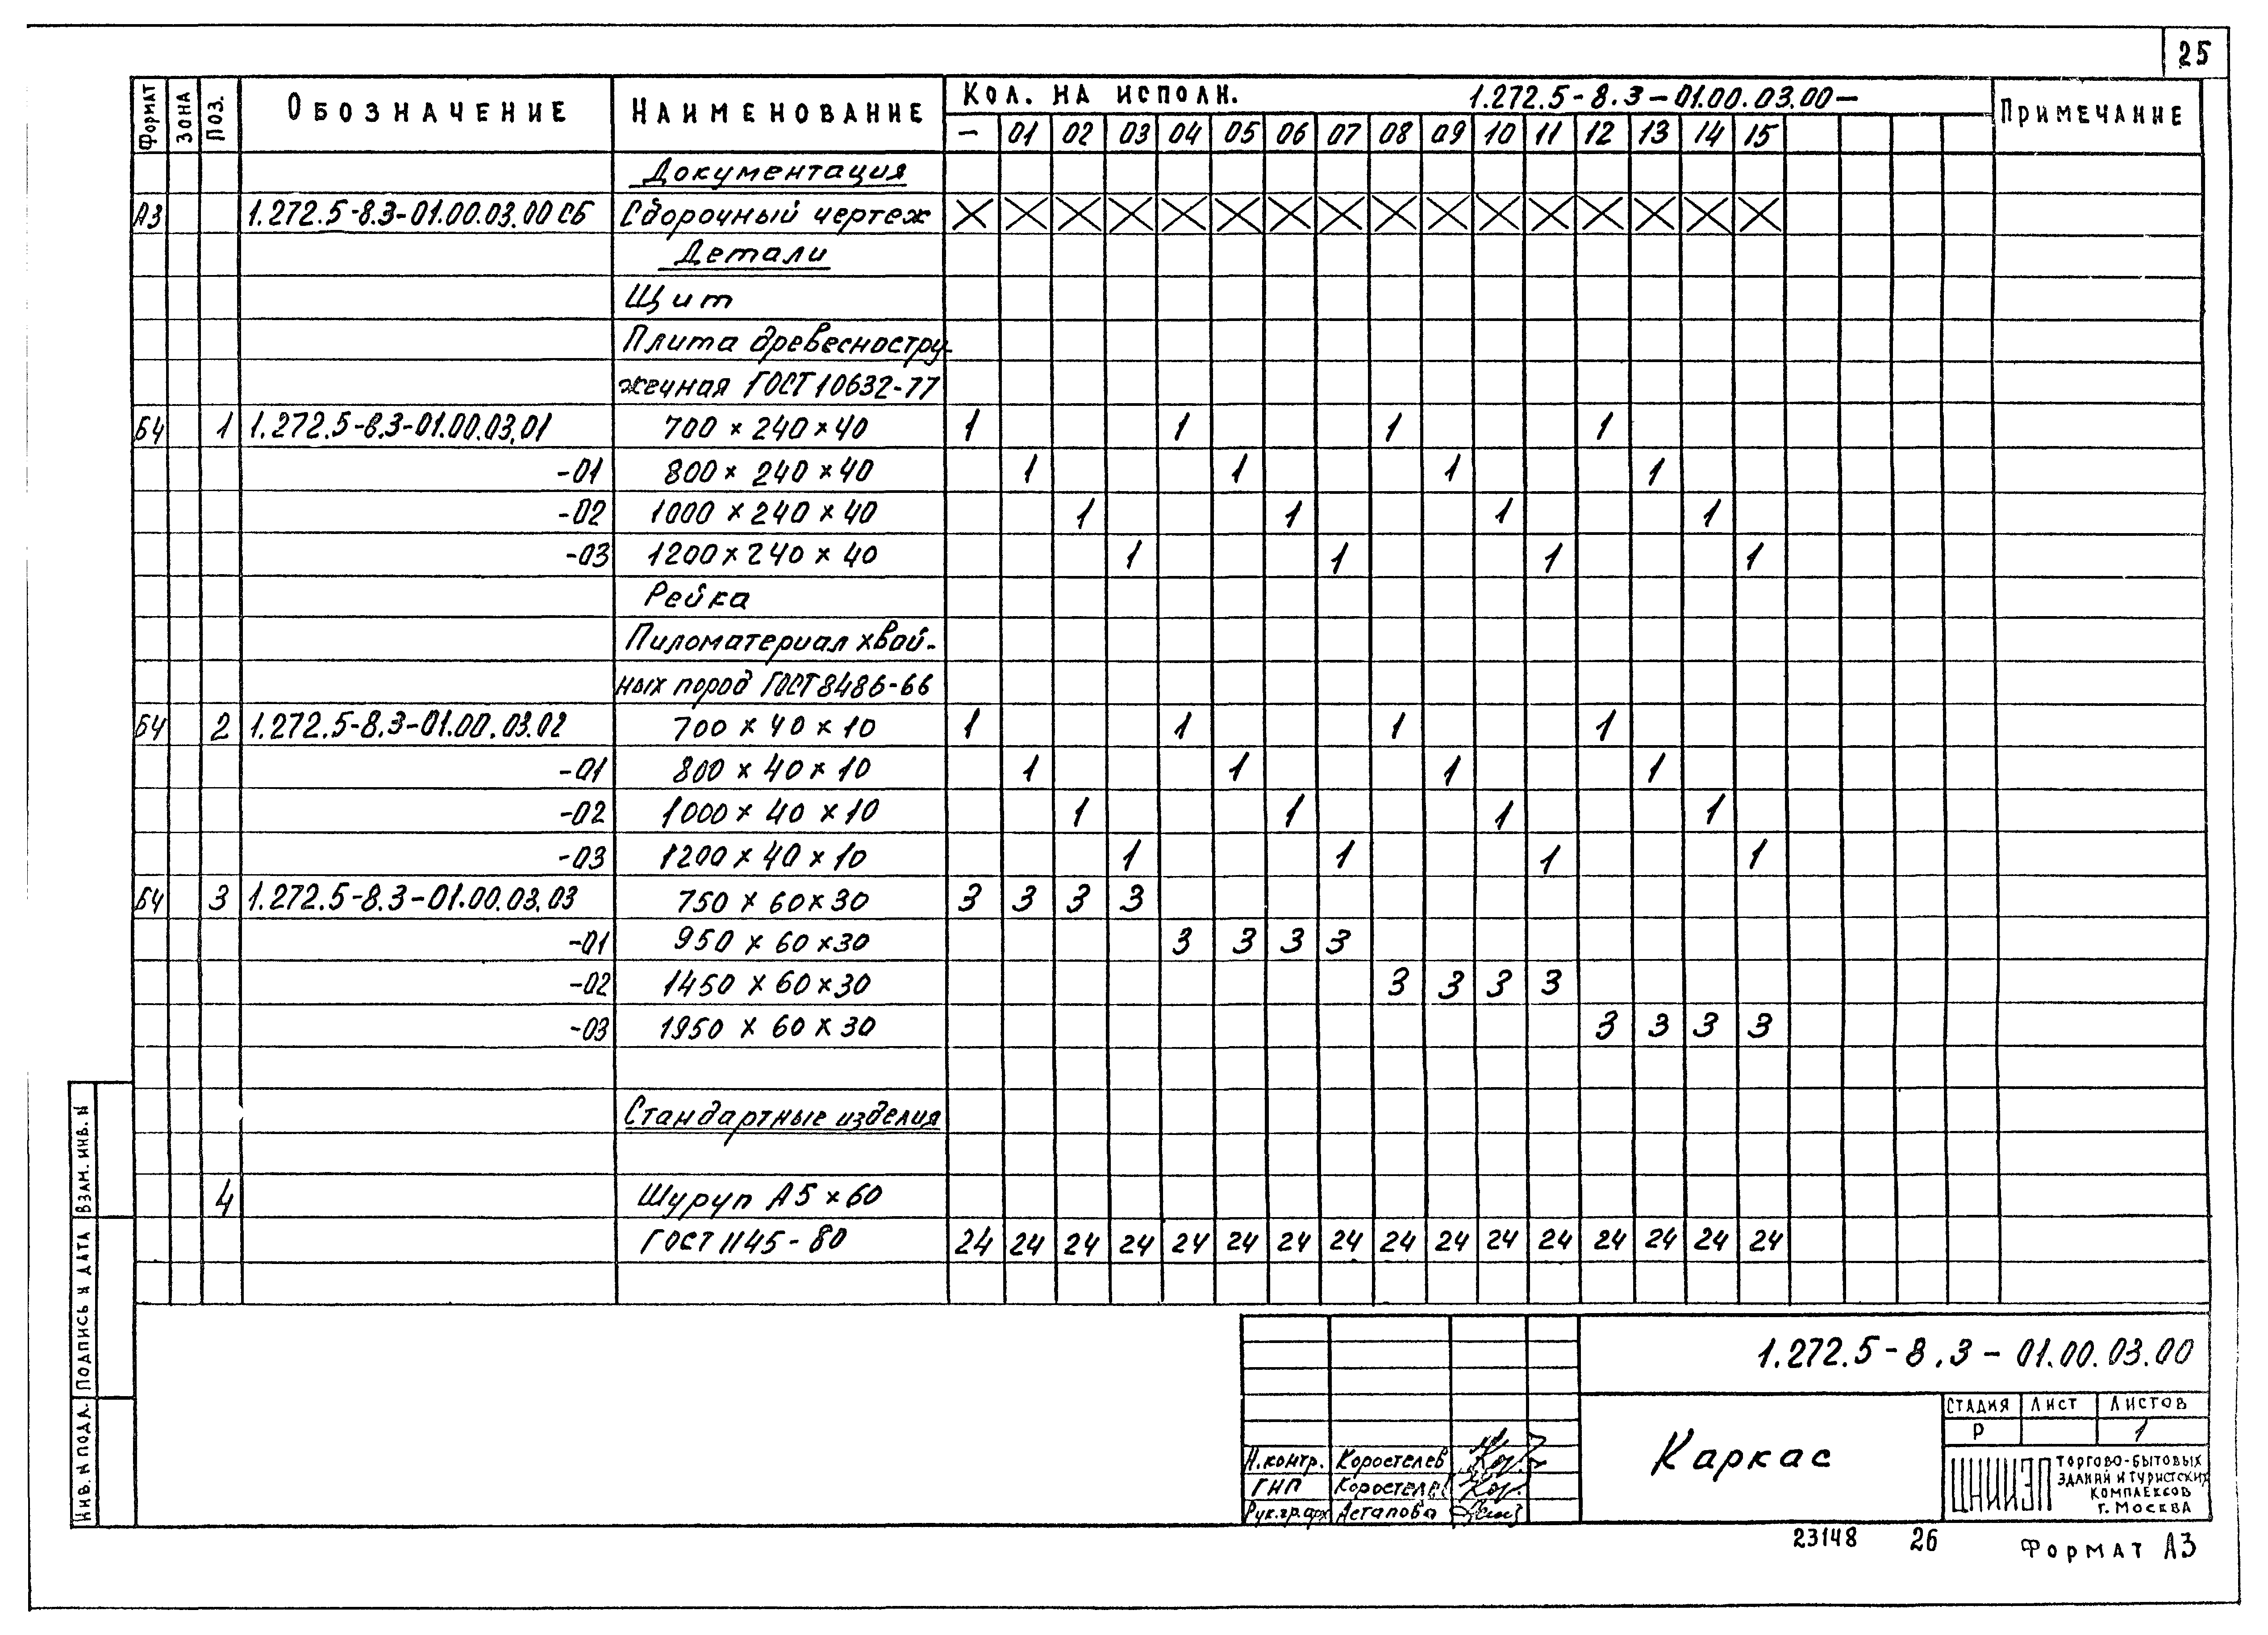 25
Формат Зона Поз. Обозначение Наименование Кол. на исполн. 1.272.5-8.3-01.00.03.00- Примечание
- 01 02 03 04 05 06 07 08 09 10 11 12 13 14 15
Документация
А3 1.272.5-8.3-01.00.03.00 СБ Сборочный чертеж X X X X X X X X X X X X X X X X
Детали
Щит
Плита древесностру-
жечная ГОСТ 10632-77
Б4 1 1.272.5-8.3-01.00.03.01 700 × 240 × 40 1 1 1 1
-01 800 × 240 × 40 1 1 1 1
-02 1000 × 240 × 40 1 1 1 1
-03 1200 × 240 × 40 1 1 1 1
Рейка
Пиломатериал хвой-
ных пород ГОСТ 8486-66
Б4 2 1.272.5-8.3-01.00.03.02 700 × 40 × 10 1 1 1 1
-01 800 × 40 × 10 1 1 1 1
-02 1000 × 40 × 10 1 1 1 1
-03 1200 × 40 × 10 1 1 1 1
Б4 3 1.272.5-8.3-01.00.03.03 750 × 60 × 30 3 3 3 3
-01 950 × 60 × 30 3 3 3 3
-02 1450 × 60 × 30 3 3 3 3
-03 1950 × 60 × 30 3 3 3 3
Стандартные изделия
4 Шуруп А5 × 60
ГОСТ 1145-80 24 24 24 24 24 24 24 24 24 24 24 24 24 24 24 24
Инв. № подл. Подпись и дата Взам. инв. №
1.272.5-8.3-01.00.03.00
Каркас
Стадия Лист Листов
Р 1
Н.контр. Коростелев
ГИП Коростелев
Рук.гр.арх Астапова
ЦНИИЭП торгово-бытовых
зданий и туристских
комплексов
г. Москва
23148 26
Формат А3